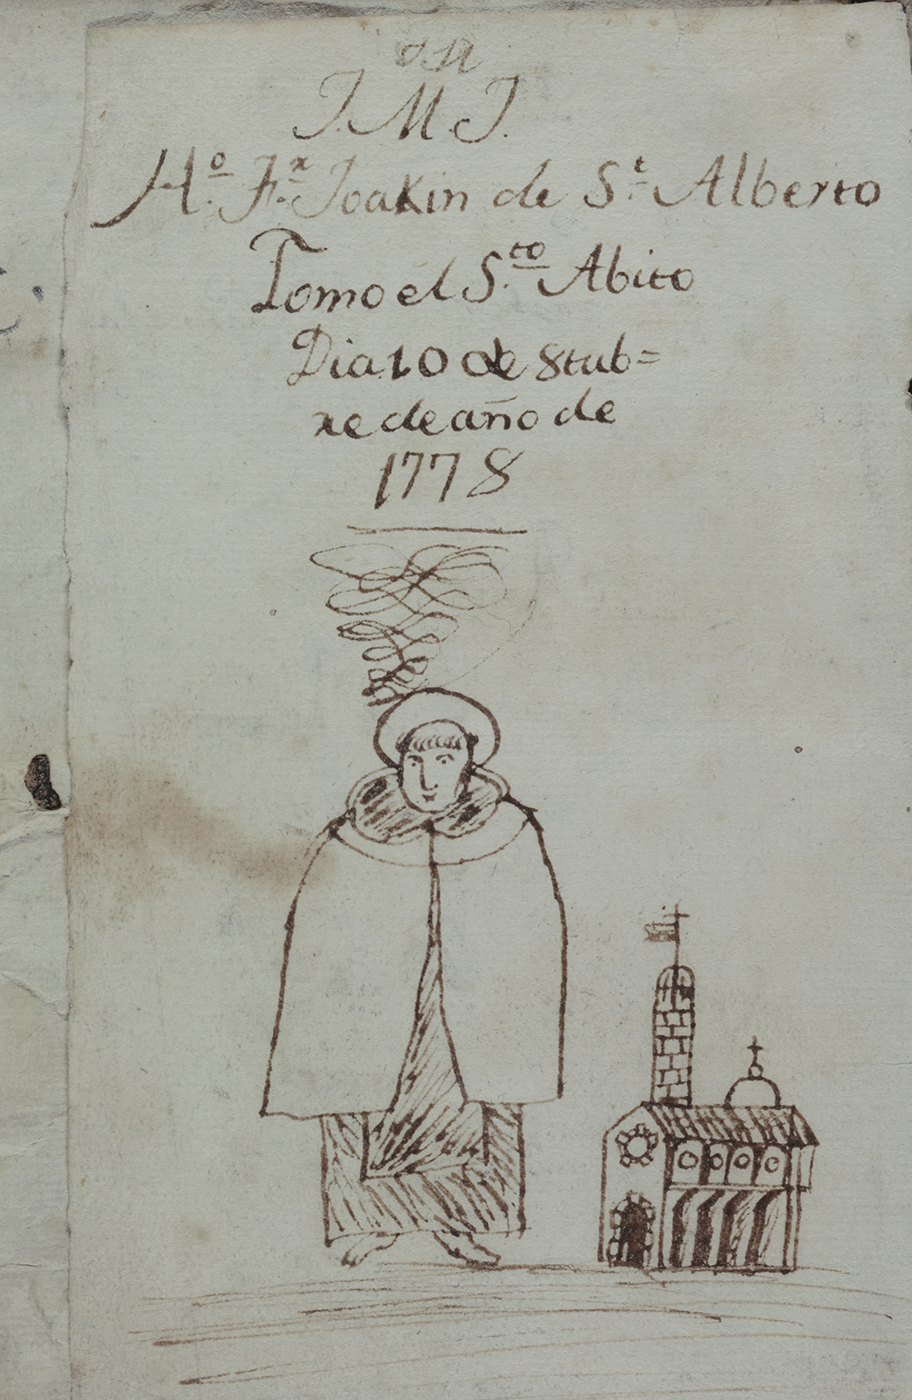 J. M. J.
H.º F.ʳ Joakin de S.ᵗ Alberto
Tomo el S.ᵗᵒ Abito
Dia 10 de 8tub=
re de año de
1778